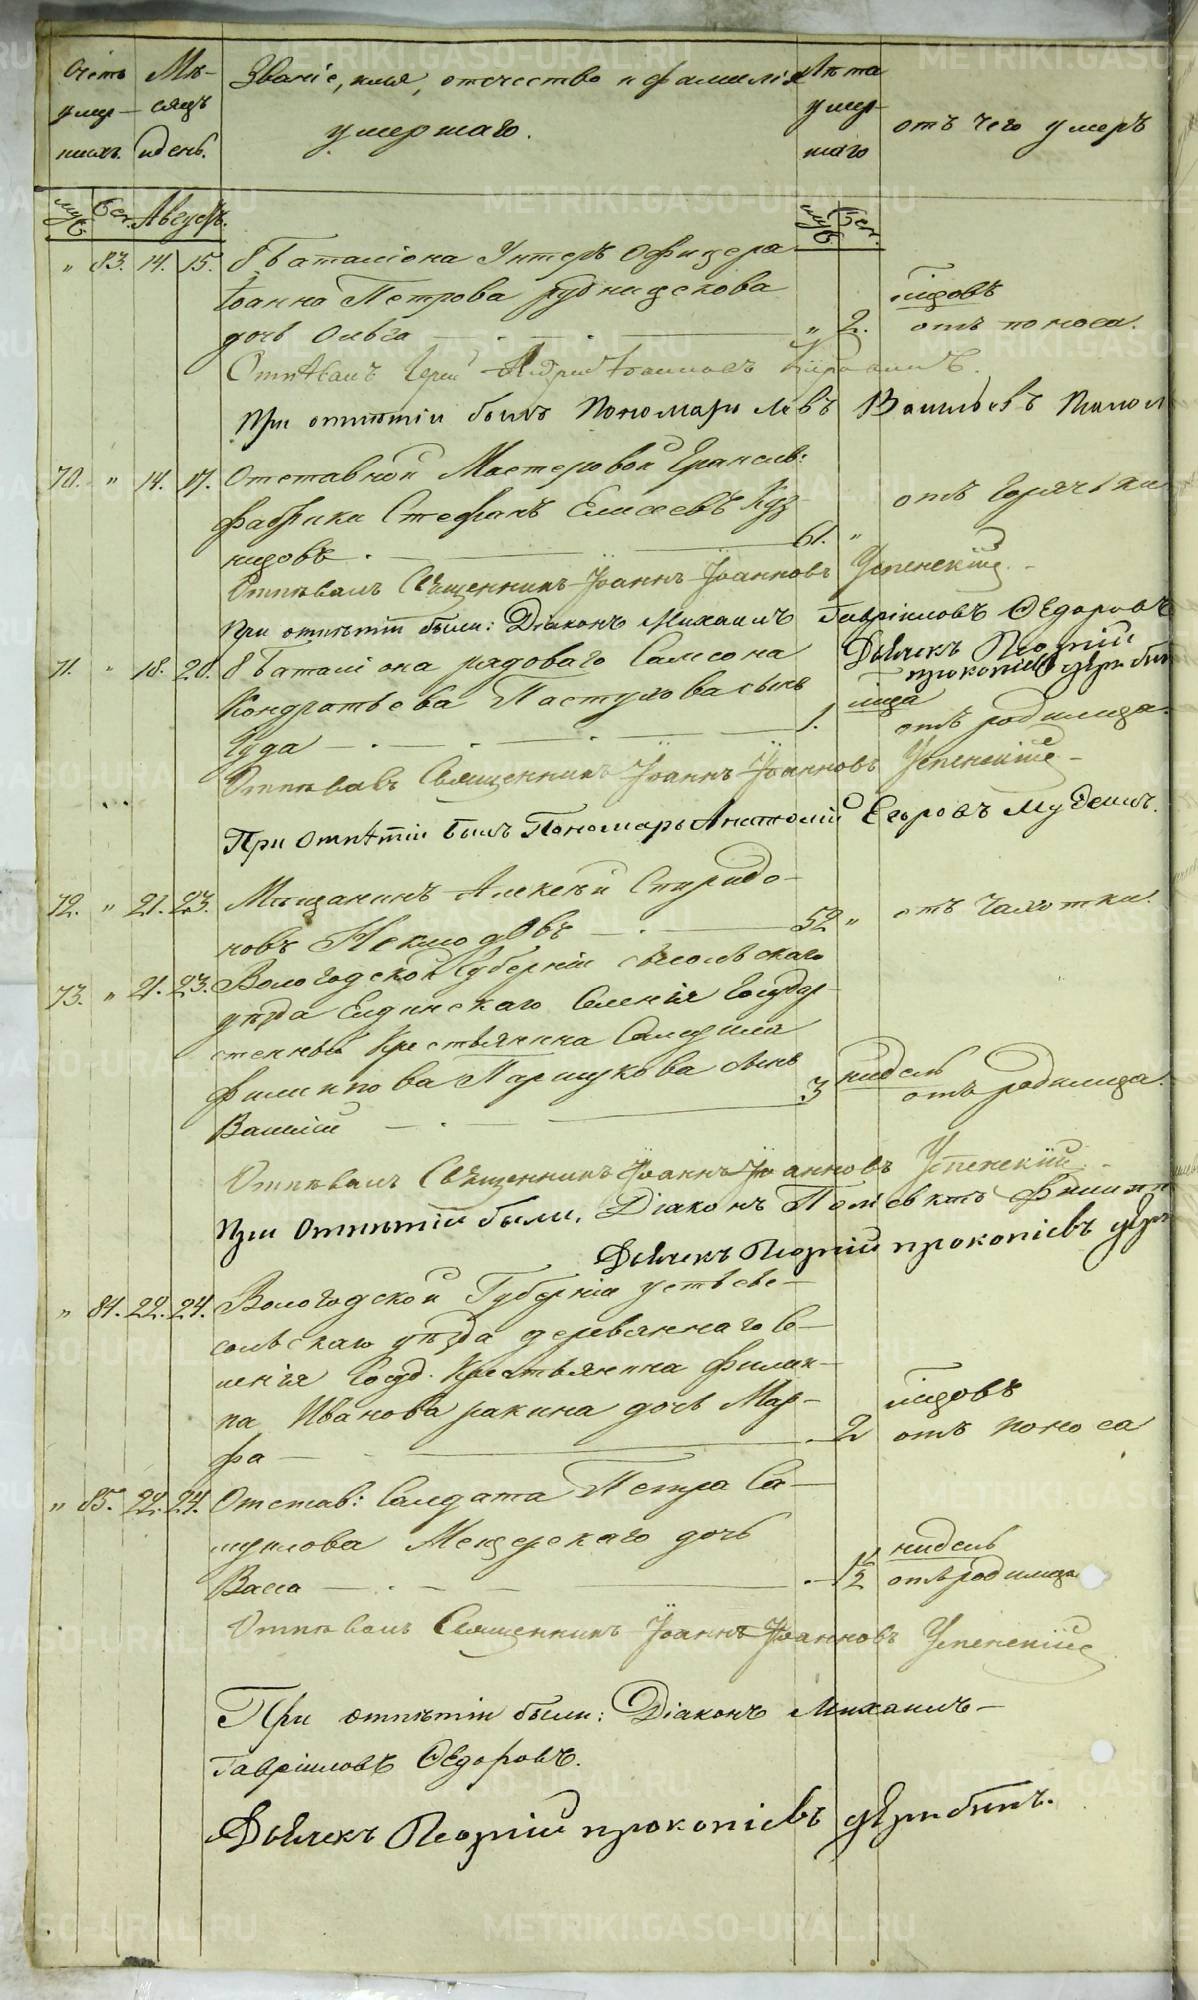 Счетъ умер- шихъ. Мѣ- сяцъ и день. Званіе, имя, отчество и фамилія умершаго. Лѣта умер- шаго отъ чего умеръ
муж. жен. Августъ. муж. жен.
" 83. 14. 15. 8 Баталіона Унтеръ офицера
Іоанна Петрова
дочь Ольга " 2. годовъ отъ поноса.
Отпѣвалъ Іерей Іоанновъ
При отпѣтіи былъ Пономарь Левъ Васильевъ
70. " 14. 17. Отставной Мастеровой Гранильн:
фабрики Стефанъ Елисеевъ Куз
нецовъ 61. " отъ горячки
Отпѣвалъ Священникъ Іоаннъ Іоанновъ Успенскій
При отпѣтіи были: Діаконъ Михаилъ Гавріиловъ Ѳедоровъ
Дьячекъ Георгій прокопіевъ
71. " 18. 20. 8 Баталіона рядоваго Самсона
Кондратьева Пастухова сынъ
Іуда 1. отъ родимца.
Отпѣвалъ Священникъ Іоаннъ Іоанновъ Успенскій
При Отпѣтіи былъ Пономарь Анатолій Егоровъ
72. " 21. 23. Мѣщанинъ Алексѣй Спиридо-
новъ Неклюдовъ 52 " отъ чахотки.
73. " 21. 23. Вологодской Губерніи
уѣзда селенія Государ-
ственный Крестьянина
Филипова сынъ
Василій 3 нидель отъ родимца.
Отпѣвалъ Священникъ Іоаннъ Іоанновъ Успенскій
При Отпѣтіи были, Діаконъ Поліевктъ
Дьячекъ Георгій прокопіевъ
" 84. 22. 24. Вологодской Губерніи устьсы-
сольскаго уѣзда деревяннаго се-
ленія Госуд. Крестьянина Филип-
па Иванова ракина дочь Мар-
фа 2 годовъ отъ поноса
" 85. 22. 24. Отстав: Солдата Петра Са-
муилова Мещерскаго дочь
Васса 1½ нидель отъ родимца
Отпѣвалъ Священникъ Іоаннъ Іоанновъ Успенскій
При отпѣтіи были: Діаконъ Михаилъ
Гавріиловъ Ѳедоровъ.
Дьячекъ Георгій прокопіевъ
METRIKI.GASO-URAL.RU